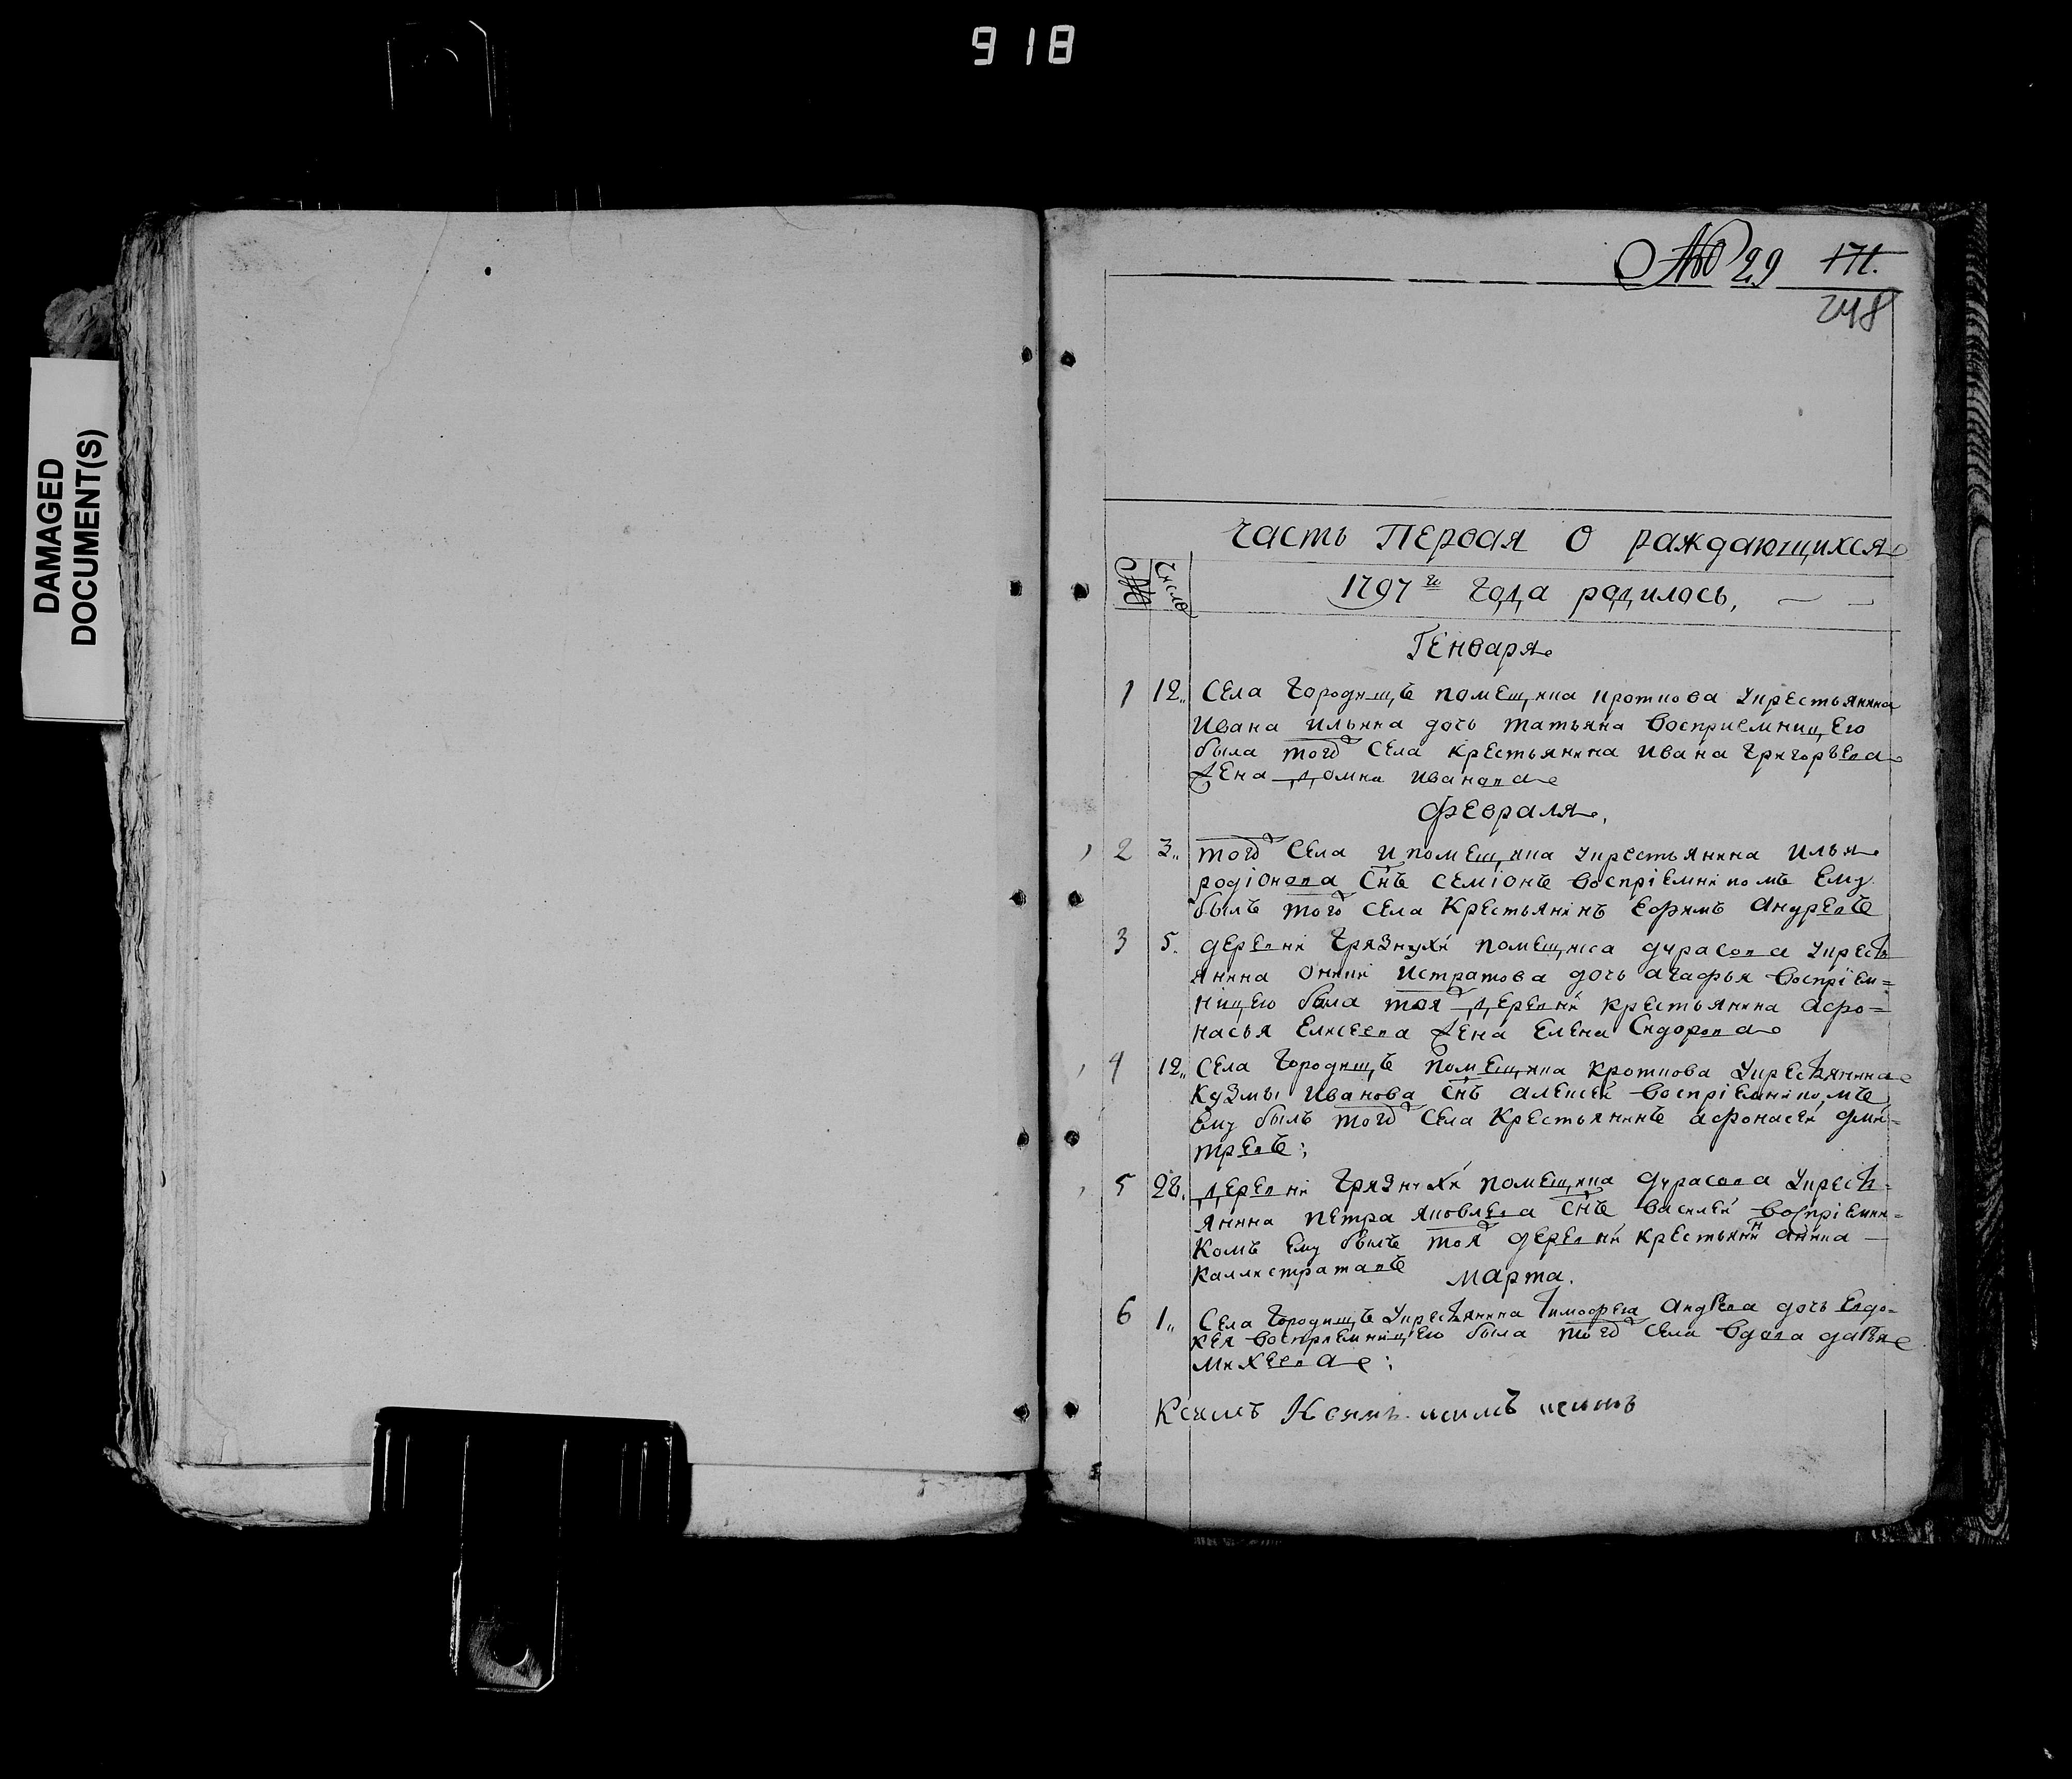 918
DAMAGED
DOCUMENT(S)
№ 29 171.
248
Часть Первая О раждающихся
№ Число
1797 го Года родилось,
Генваря
1 12. Села Городищъ помещика кроткова у крестьянина
Ивана Ильина дочь татьяна восприемницею
была того Села крестьянина Ивана Григорьева
жена домна Иванова
Февраля,
2 3. того Села и помещика у крестьянина Ильи
родіонова Снъ Семіонъ воспріемникомъ Ему
былъ того Села Крестьянинъ Ефимъ Андревъ
3 5. деревни Грязнухи помещика дурасова у кресть
янина Истратова дочь агафья воспріем=
ницею была тоя деревни крестьянина афо=
насья Елисеева жена Елена Сидорова
4 12. Села Городищъ помещика кроткова у крестьянина
Кузмы Иванова Снъ алексей воспріемникомъ
Ему былъ того Села Крестьянинъ афонасей дми=
тревъ;
5 28. деревни Грязнухи помещика Дурасова у кресть-
янина петра яковлева Снъ василей воспріемни=
комъ Ему былъ тоя деревни крестьянинъ аника
Каллистратавъ
Марта.
6 1. Села Городищъ у крестьянина тимофея Андрева дочь Евдо=
кея восприемницею была того Села вдова дарья
михеева;